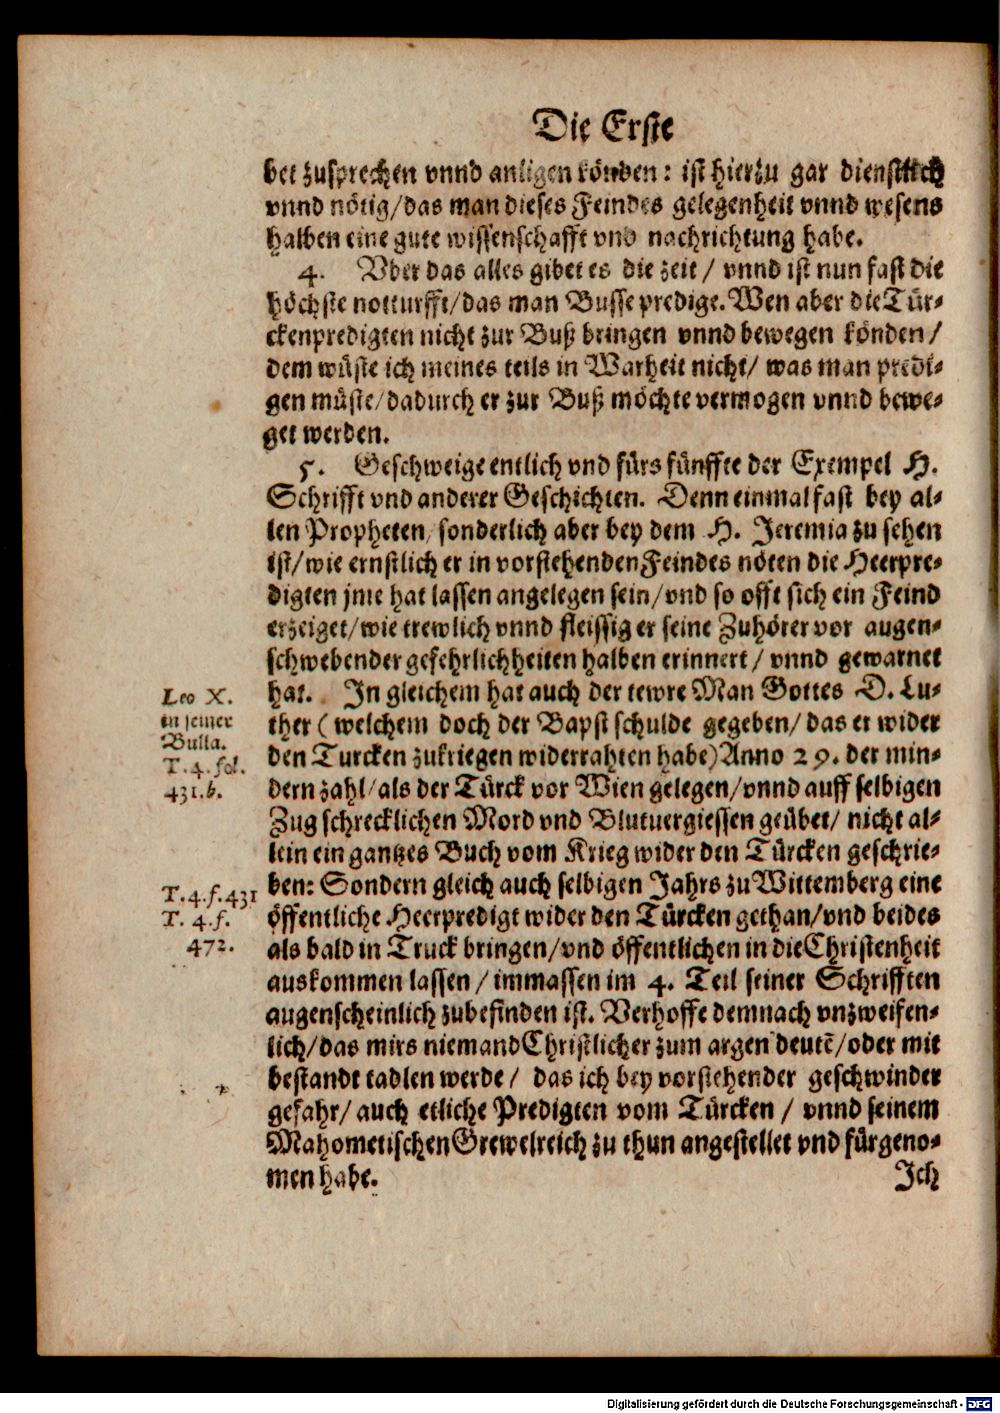 Die Erste
bet zusprechen vnnd anligen könden: ist hierzu gar dienstlich
vnnd nötig/das man dieses Feindes gelegenheit vnnd wesens
halben eine gute wissenschafft vnd nachrichtung habe.
4. Vber das alles gibet es die zeit/ vnnd ist nun fast die
höchste notturfft/das man Busse predige. Wen aber die Tür-
ckenpredigten nicht zur Buß bringen vnnd bewegen könden/
dem wüste ich meines teils in Warheit nicht/ was man predi-
gen müste/dadurch er zur Buß möchte vermogen vnnd bewe-
get werden.
5. Geschweige entlich vnd fürs fünffte der Exempel H.
Schrifft vnd anderer Geschichten. Denn einmal fast bey al-
len Propheten/sonderlich aber bey dem H. Jeremia zu sehen
ist/wie ernstlich er in vorstehenden Feindes nöten die Heerpre-
digten jme hat lassen angelegen sein/vnd so offt sich ein Feind
erzeiget/wie trewlich vnnd fleissig er seine Zuhörer vor augen-
schwebender gefehrlichheiten halben erinnert/ vnnd gewarnet
hat. In gleichem hat auch der tewre Man Gottes D. Lu-
ther ( welchem doch der Bapst schulde gegeben/ das er wider
den Turcken zukriegen widerrahten habe) Anno 29. der min-
dern zahl/als der Türck vor Wien gelegen/vnnd auff selbigen
Zug schrecklichen Mord vnd Blutuergiessen geübet/ nicht al-
lein ein gantzes Buch vom Krieg wider den Türcken geschrie-
ben: Sondern gleich auch selbigen Jahrs zu Wittemberg eine
öffentliche Heerpredigt wider den Türcken gethan/vnd beides
als bald in Truck bringen/vnd öffentlichen in die Christenheit
auskommen lassen/ immassen im 4. Teil seiner Schrifften
augenscheinlich zubefinden ist. Verhoffe demnach vnzweifen-
lich/das mirs niemand Christlicher zum argen deutẽ/oder mit
bestandt tadlen werde/ das ich bey vorstehender geschwinder
gefahr/ auch etliche Predigten vom Türcken/ vnnd seinem
Mahometischen Grewelreich zu thun angestellet vnd fürgeno-
men habe.
Ich
Leo X.
in seiner
Bulla.
T. 4. fol.
431.b.
T.4.f.431
T. 4.f.
472.
Digitalisierung gefördert durch die Deutsche Forschungsgemeinschaft - DFG